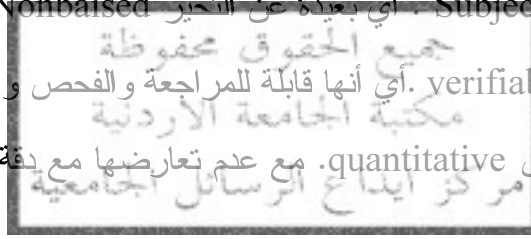 Nonbaised أي بعيدة عن التحيز . Subjec
جميع الحقوق محفوظة
verifiab .أي أنها قابلة للمراجعة والفحص و
مكتبة الجامعة الأردنية
quantitative. مع عدم تعارضها مع دقة
مركز ايداع الرسائل الجامعية